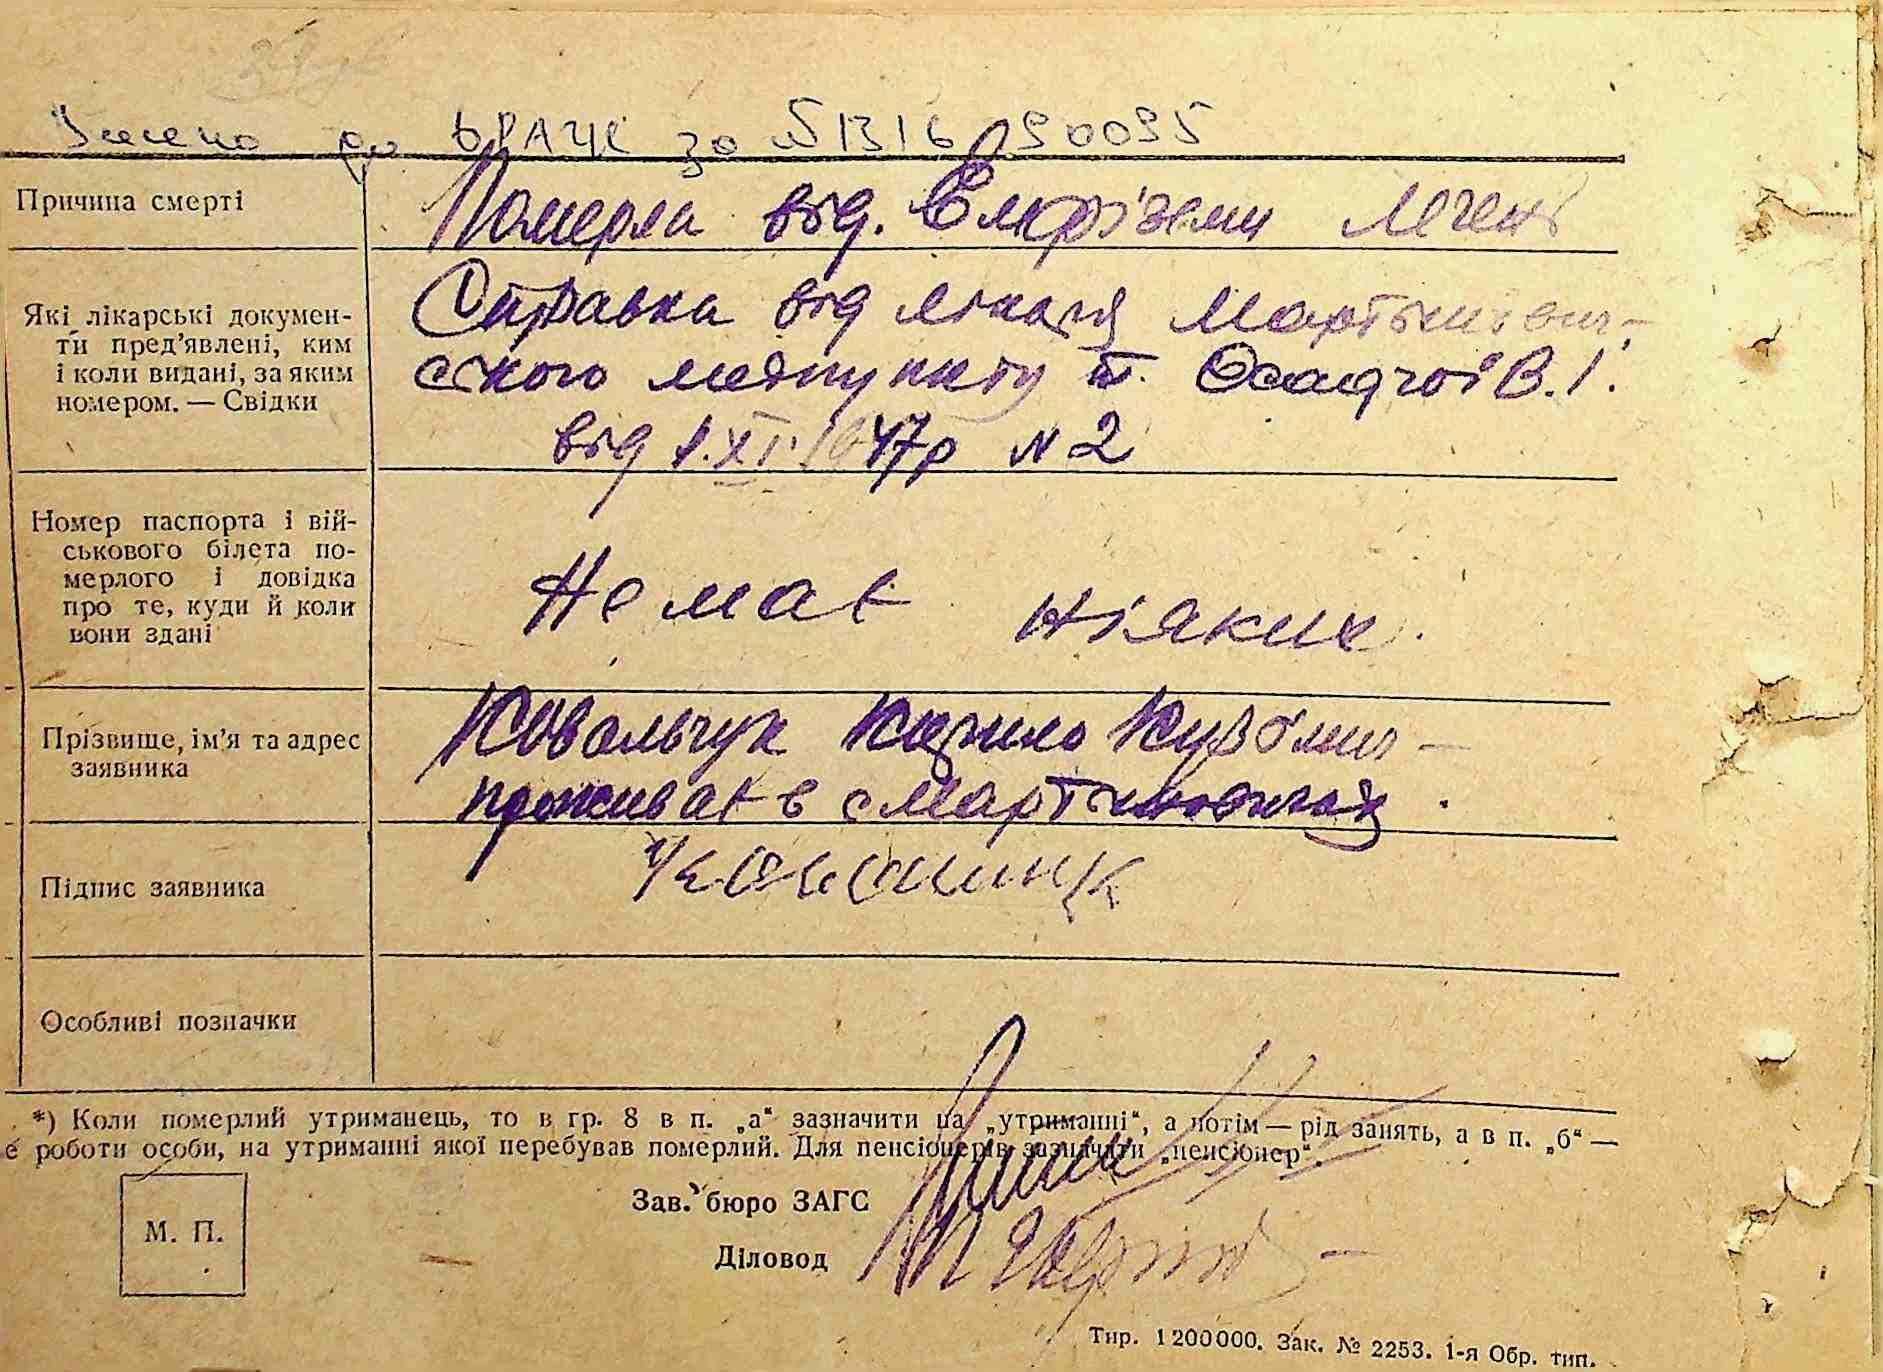 Внесено до ДРАЦС за №1316 90095
Причина смерті
Померла від. Емфіземи легені
Які лікарські докумен-
ти пред'явлені, ким
і коли видані, за яким
номером. — Свідки
Справка від лікаря Мартинович-
ського медпункту т. Осадчої В.І.
від 1.XI.1947р N 2
Номер паспорта і вій-
ськового білета по-
мерлого і довідка
про те, куди й коли
вони здані
Немає ніяких.
Прізвище, ім'я та адрес
заявника
Ковальчук Кирило Кузьмич –
проживає в с Мартиновичах.
Підпис заявника
Особливі позначки
*) Коли померлий утриманець, то в гр. 8 в п. „а“ зазначити на „утриманні“, а потім — рід занять, а в п. „б“ —
є роботи особи, на утриманні якої перебував померлий. Для пенсіонерів зазначити „пенсіонер“.
Зав. бюро ЗАГС
М. П.
Діловод
Тир. 1200000. Зак. № 2253. 1-я Обр. тип.